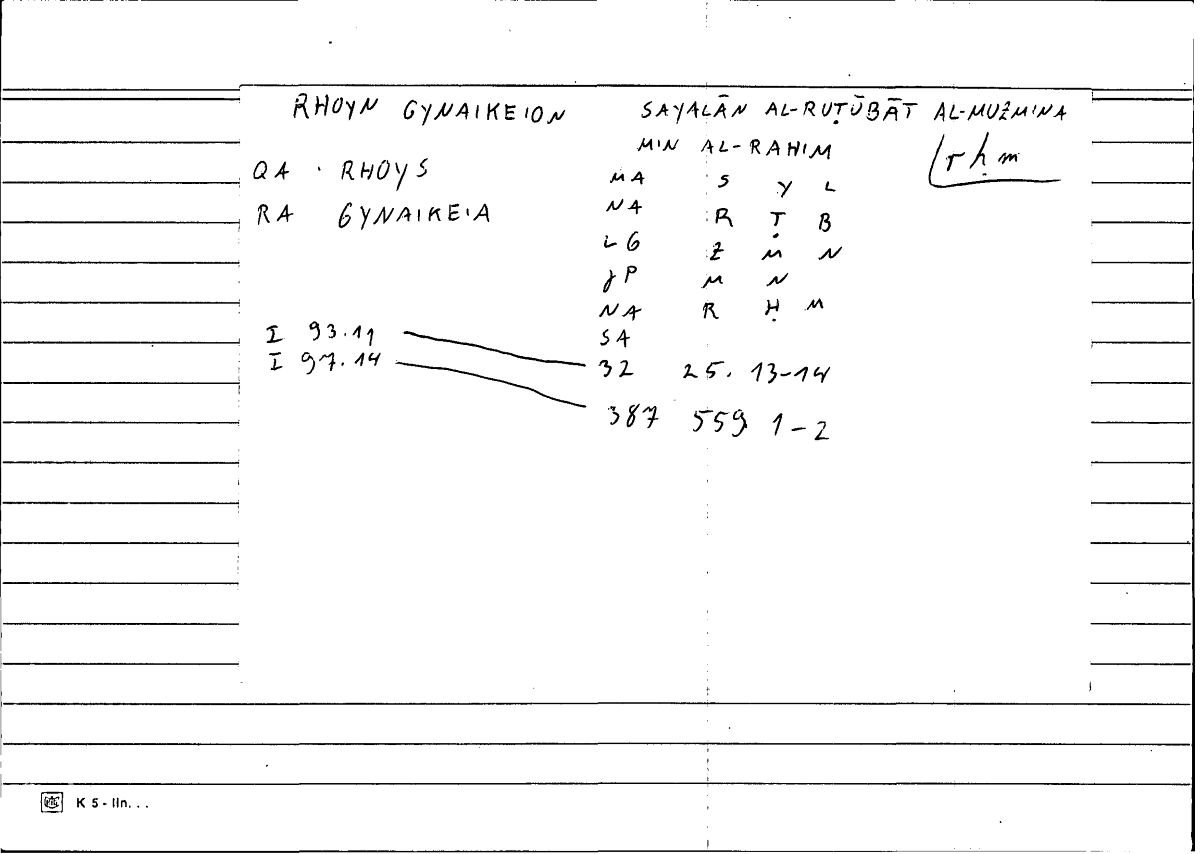 RHOYN GYNAIKEION SAYALĀN AL-RUṬŪBĀT AL-MUŽMINA
MIN AL-RAHIM rḥm
QA · RHOYS MA S Y L
RA GYNAIKEIA NA R Ṭ B
LG Ž M N
JP M N
NA R Ḥ M
I 93.11 SA
I 97.14 32 25. 13-14
387 559 1-2
K 5 - lln. . .